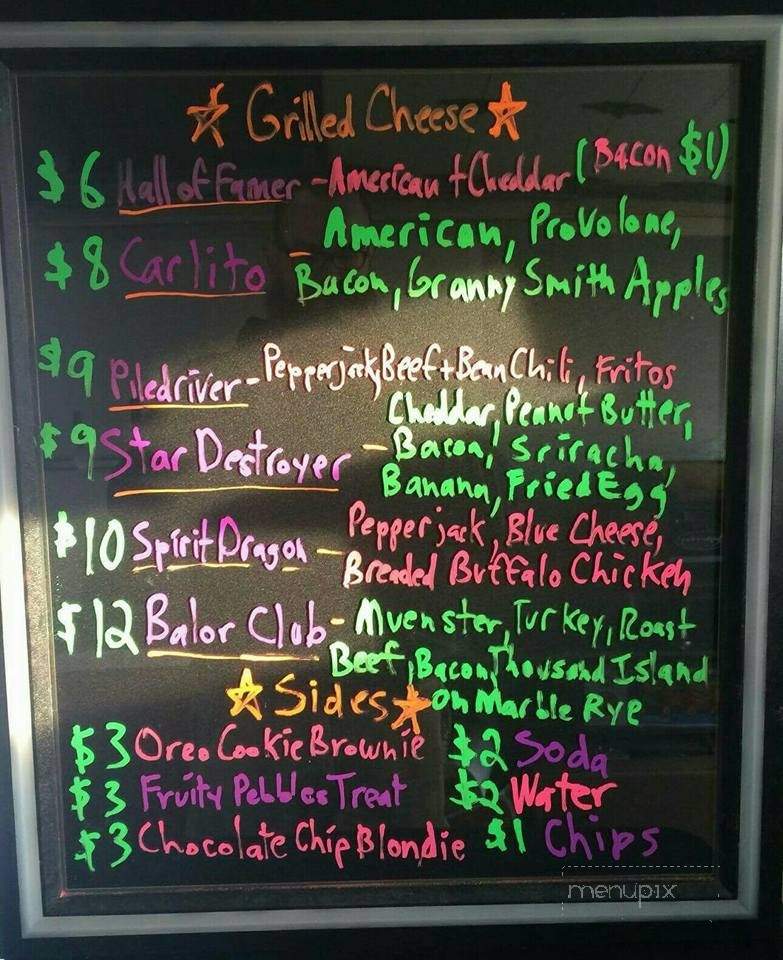 Grilled Cheese
$6 Hall of Famer - American + Cheddar (Bacon $1)
$8 Carlito - American, Provolone,
Bacon, Granny Smith Apples
$9 Piledriver - Pepperjack, Beef + Bean Chili, Fritos
$9 Star Destroyer - Cheddar, Peanut Butter,
Bacon, Sriracha,
Banana, Fried Egg
$10 Spirit Dragon - Pepperjack, Blue Cheese,
Breaded Buffalo Chicken
$12 Balor Club - Muenster, Turkey, Roast
Beef, Bacon, Thousand Island
on Marble Rye
Sides
$3 Oreo Cookie Brownie $2 Soda
$3 Fruity Pebbles Treat $2 Water
$3 Chocolate Chip Blondie $1 Chips
menupix